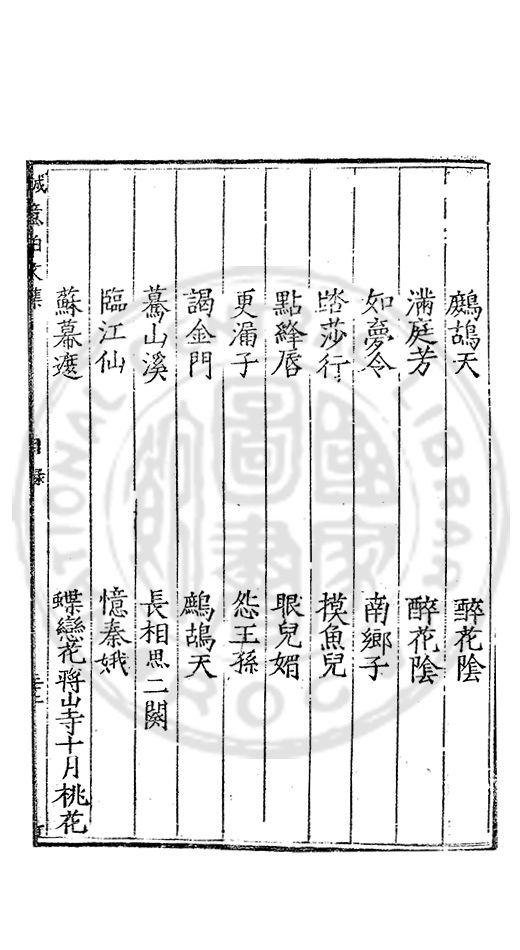 鷓鴣天 醉花陰
滿庭芳 醉花陰
如夢令 南鄉子
踏莎行 摸魚兒
點絳唇 眼兒媚
更漏子 怨王孫
謁金門 鷓鴣天
驀山溪 長相思二闋
臨江仙 憶秦娥
蘇幕遮 蝶戀花蔣山寺十月桃花
誠意伯文集 目錄